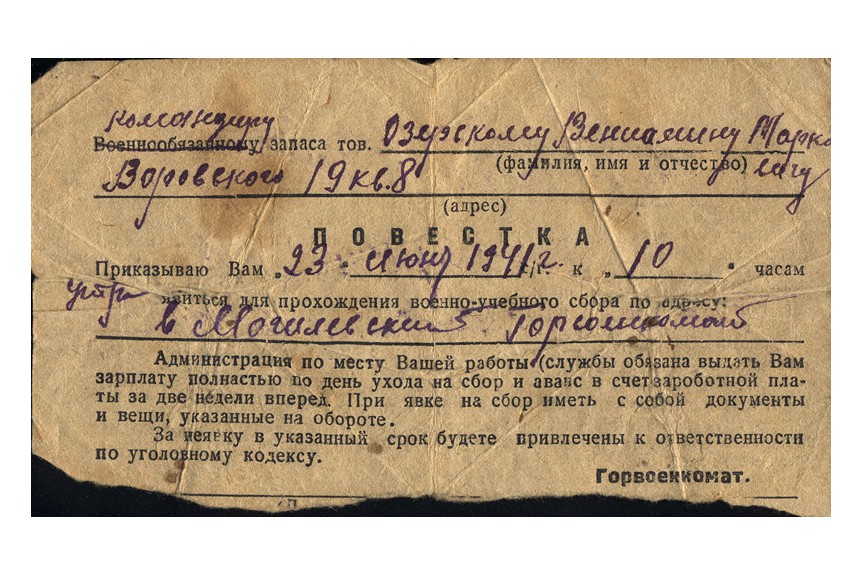 командиру
Военнообязанному запаса тов. Озерскому Вениамину Марко
(фамилия, имя и отчество)
Воровского 19 кв. 8
(адрес)
ПОВЕСТКА
Приказываю Вам „23" июня 1941 г. к „10" часам
утра явиться для прохождения военно-учебного сбора по адресу:
в Могилевский
Администрация по месту Вашей работы (службы обязана выдать Вам
зарплату полностью по день ухода на сбор и аванс в счет зароботной пла-
ты за две недели вперед. При явке на сбор иметь с собой документы
и вещи, указанные на обороте.
За неявку в указанный срок будете привлечены к ответственности
по уголовному кодексу.
Горвоенкомат.